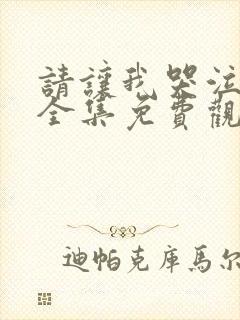 請讓我哭泣
全集免費觀
迪帕克庫馬尔